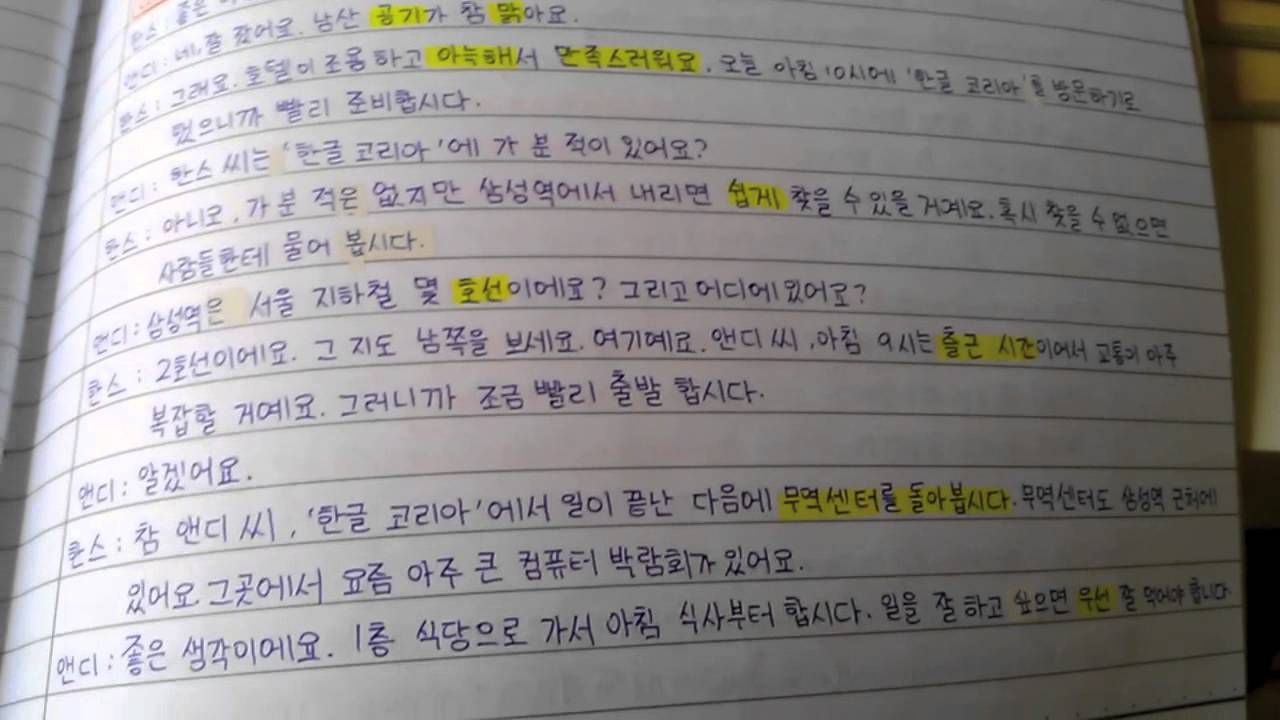 한스 : 좋은
앤디 : 네, 잘 잤어요. 남산 공기가 참 맑아요.
한스 : 그래요. 호텔이 조용하고 아늑해서 만족스러워요. 오늘 아침 10시에 '한글 코리아'를 방문하기로
했으니까 빨리 준비합시다.
앤디 : 한스 씨는 '한글 코리아'에 가 본 적이 있어요?
한스 : 아니오, 가 본 적은 없지만 삼성역에서 내리면 쉽게 찾을 수 있을 거예요. 혹시 찾을 수 없으면
사람들한테 물어 봅시다.
앤디 : 삼성역은 서울 지하철 몇 호선이에요? 그리고 어디에 있어요?
한스 : 2호선이에요. 그 지도 남쪽을 보세요. 여기예요. 앤디 씨, 아침 9시는 출근 시간이어서 교통이 아주
복잡할 거예요. 그러니까 조금 빨리 출발 합시다.
앤디 : 알겠어요.
한스 : 참 앤디 씨, '한글 코리아'에서 일이 끝난 다음에 무역센터를 돌아봅시다. 무역센터도 삼성역 근처에
있어요. 그곳에서 요즘 아주 큰 컴퓨터 박람회가 있어요.
앤디 : 좋은 생각이에요. 1층 식당으로 가서 아침 식사부터 합시다. 일을 잘 하고 싶으면 우선 잘 먹어야 합니다.